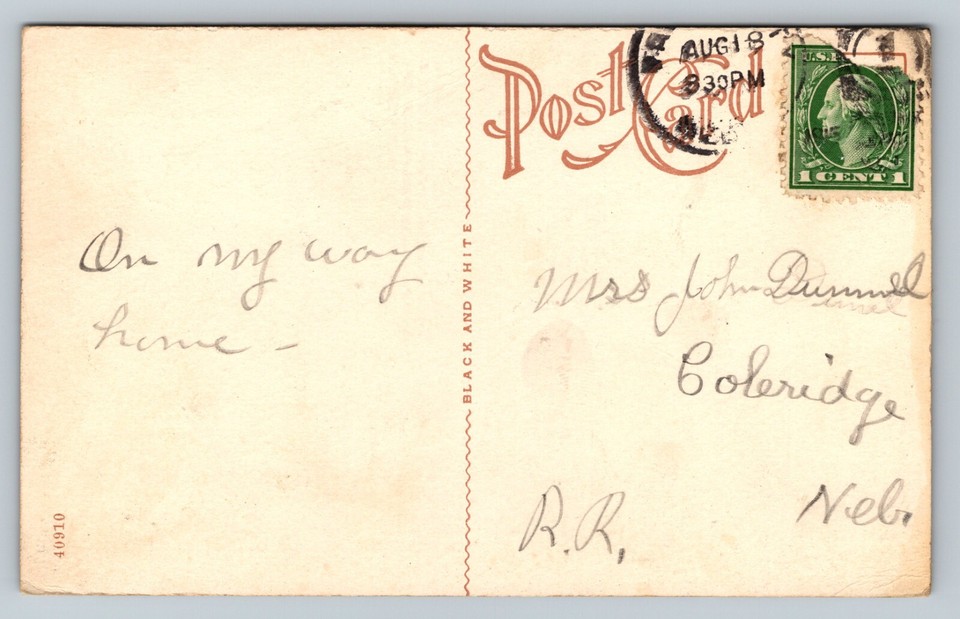 Post Card
AUG 18
830PM
U.S.
1 CENT 1
On my way
home -
BLACK AND WHITE
Mrs John
Coleridge
Neb.
R.R.
40910